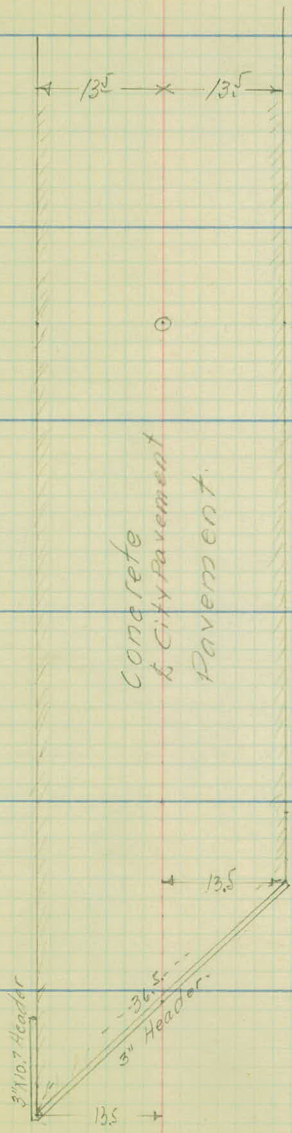 13.5 13.5
Concrete
℄ City Pavement
Pavement.
13.5
36.5
3" Header.
3"x10.7 Header
13.5